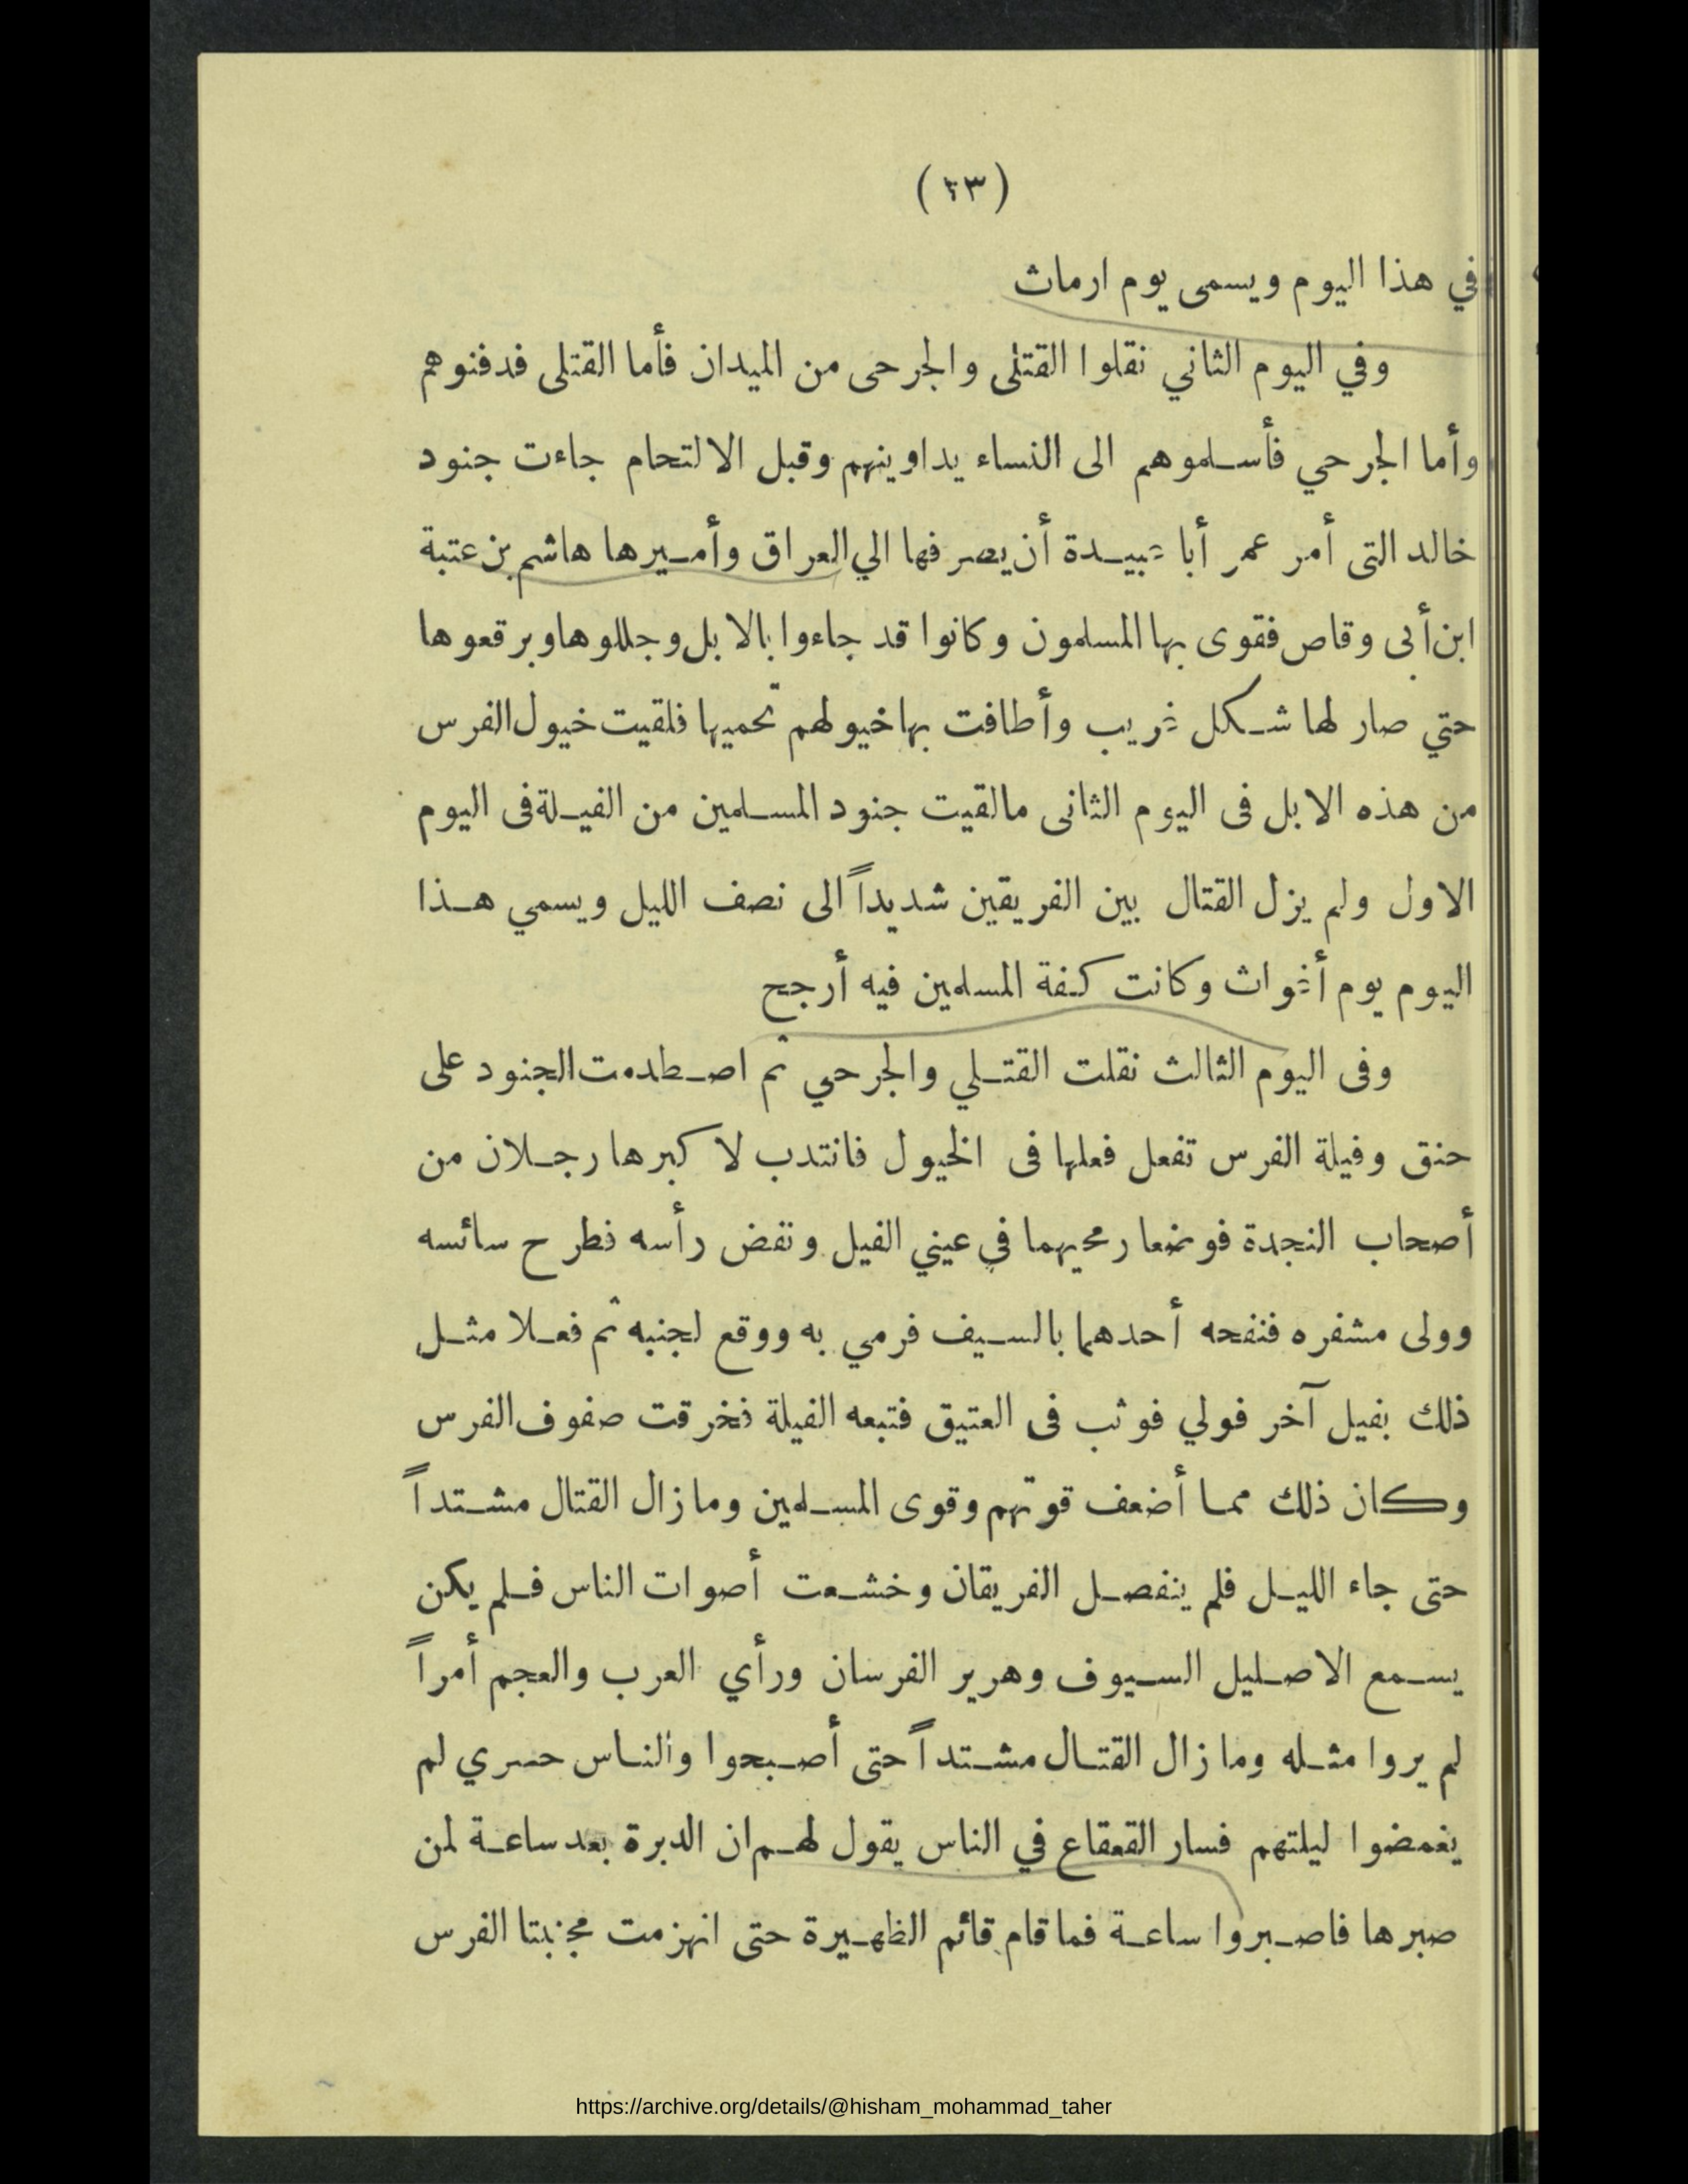 (٤٣)
في هذا اليوم ويسمى يوم ارماث
وفي اليوم الثاني نقلوا القتلى والجرحى من الميدان فأما القتلى فدفنوهم
وأما الجرحي فأسلموهم الى النساء يداوينهم وقبل الالتحام جاءت جنود
خالد التى أمر عمر أبا عبيدة أن يصرفها الي العراق وأميرها هاشم بن عتبة
ابن أبى وقاص فقوى بها المسلمون وكانوا قد جاءوا بالابل وجللوها وبرقعوها
حتي صار لها شكل غريب وأطافت بها خيولهم تحميها فلقيت خيول الفرس
من هذه الابل فى اليوم الثانى مالقيت جنود المسلمين من الفيلة فى اليوم
الاول ولم يزل القتال بين الفريقين شديداً الى نصف الليل ويسمي هذا
اليوم يوم أغواث وكانت كفة المسلمين فيه أرجح
وفى اليوم الثالث نقلت القتلي والجرحي ثم اصطدمت الجنود على
حنق وفيلة الفرس تفعل فعلها فى الخيول فانتدب لاكبرها رجلان من
أصحاب النجدة فوضعا رمحيهما في عيني الفيل ونفض رأسه فطرح سائسه
وولى مشفره فنفحه أحدهما بالسيف فرمي به ووقع لجنبه ثم فعلا مثل
ذلك بفيل آخر فولي فوثب فى العتيق فتبعه الفيلة فخرقت صفوف الفرس
وكان ذلك مما أضعف قوتهم وقوى المسلمين وما زال القتال مشتداً
حتى جاء الليل فلم ينفصل الفريقان وخشعت أصوات الناس فلم يكن
يسمع الاصليل السيوف وهرير الفرسان ورأي العرب والعجم أمراً
لم يروا مثله وما زال القتال مشتداً حتى أصبحوا والناس حسري لم
يغمضوا ليلتهم فسار القعقاع في الناس يقول لهم ان الدبرة بعد ساعة لمن
صبرها فاصبروا ساعة فما قام قائم الظهيرة حتى انهزمت مجنبتا الفرس
https://archive.org/details/@hisham_mohammad_taher